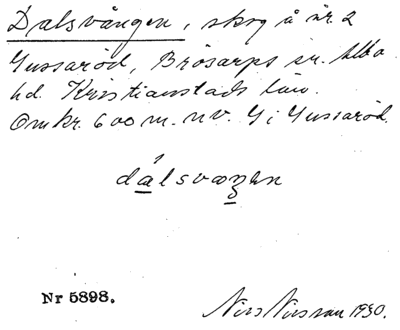 Dalsvången, skog å nr. 2
Gussaröd, Brösarps sn. Albo
hd. Kristianstads län.
Omkr. 600 m. n.v. G i Gussaröd.
dálsvæŋen
Nr 5898.
Nils Nilsson 1930.